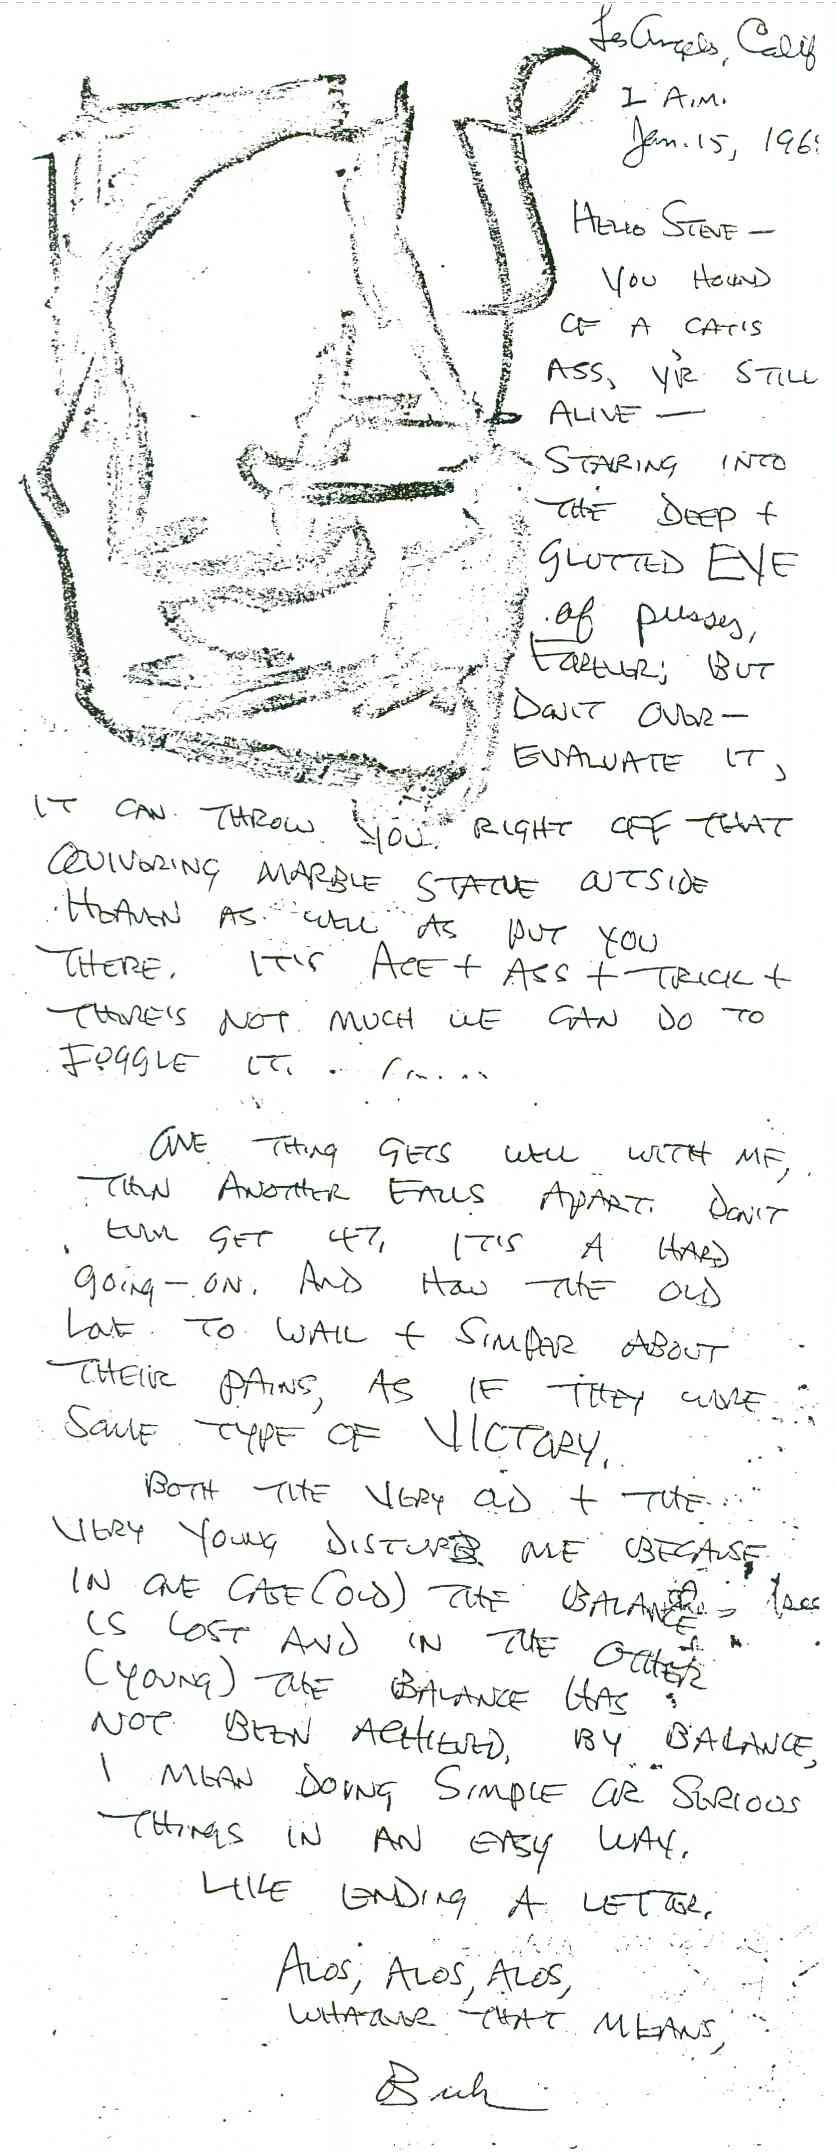 Los Angeles, Calif
1 A.M.
Jan. 15, 196
HELLO STEVE —
YOU HOUND
OF A CAT'S
ASS, Y'R STILL
ALIVE —
STARING INTO
THE DEEP +
GLUTTED EYE
of pussy,
FOREVER; BUT
DON'T OVER-
EVALUATE IT,
IT CAN THROW YOU RIGHT OFF THAT
QUIVERING MARBLE STATUE OUTSIDE
HEAVEN AS WELL AS PUT YOU
THERE. IT'S ACE + ASS + TRICK +
THERE'S NOT MUCH WE CAN DO TO
IT.
ONE THING GETS WELL WITH ME,
THEN ANOTHER FALLS APART. DON'T
EVER GET 47, IT'S A HARD
GOING-ON. AND HOW THE OLD
LOVE TO WAIL + SIMPER ABOUT
THEIR PAINS, AS IF THEY WERE
SOME TYPE OF VICTORY.
BOTH THE VERY OLD + THE
VERY YOUNG DISTURB ME BECAUSE
IN ONE CASE (OLD) THE BALANCE
IS LOST AND IN THE OTHER
(YOUNG) THE BALANCE HAS
NOT BEEN ACHIEVED. BY BALANCE,
I MEAN DOING SIMPLE OR SERIOUS
THINGS IN AN EASY WAY.
LIKE ENDING A LETTER.
ALOS, ALOS, ALOS,
WHATEVER THAT MEANS,
Buk